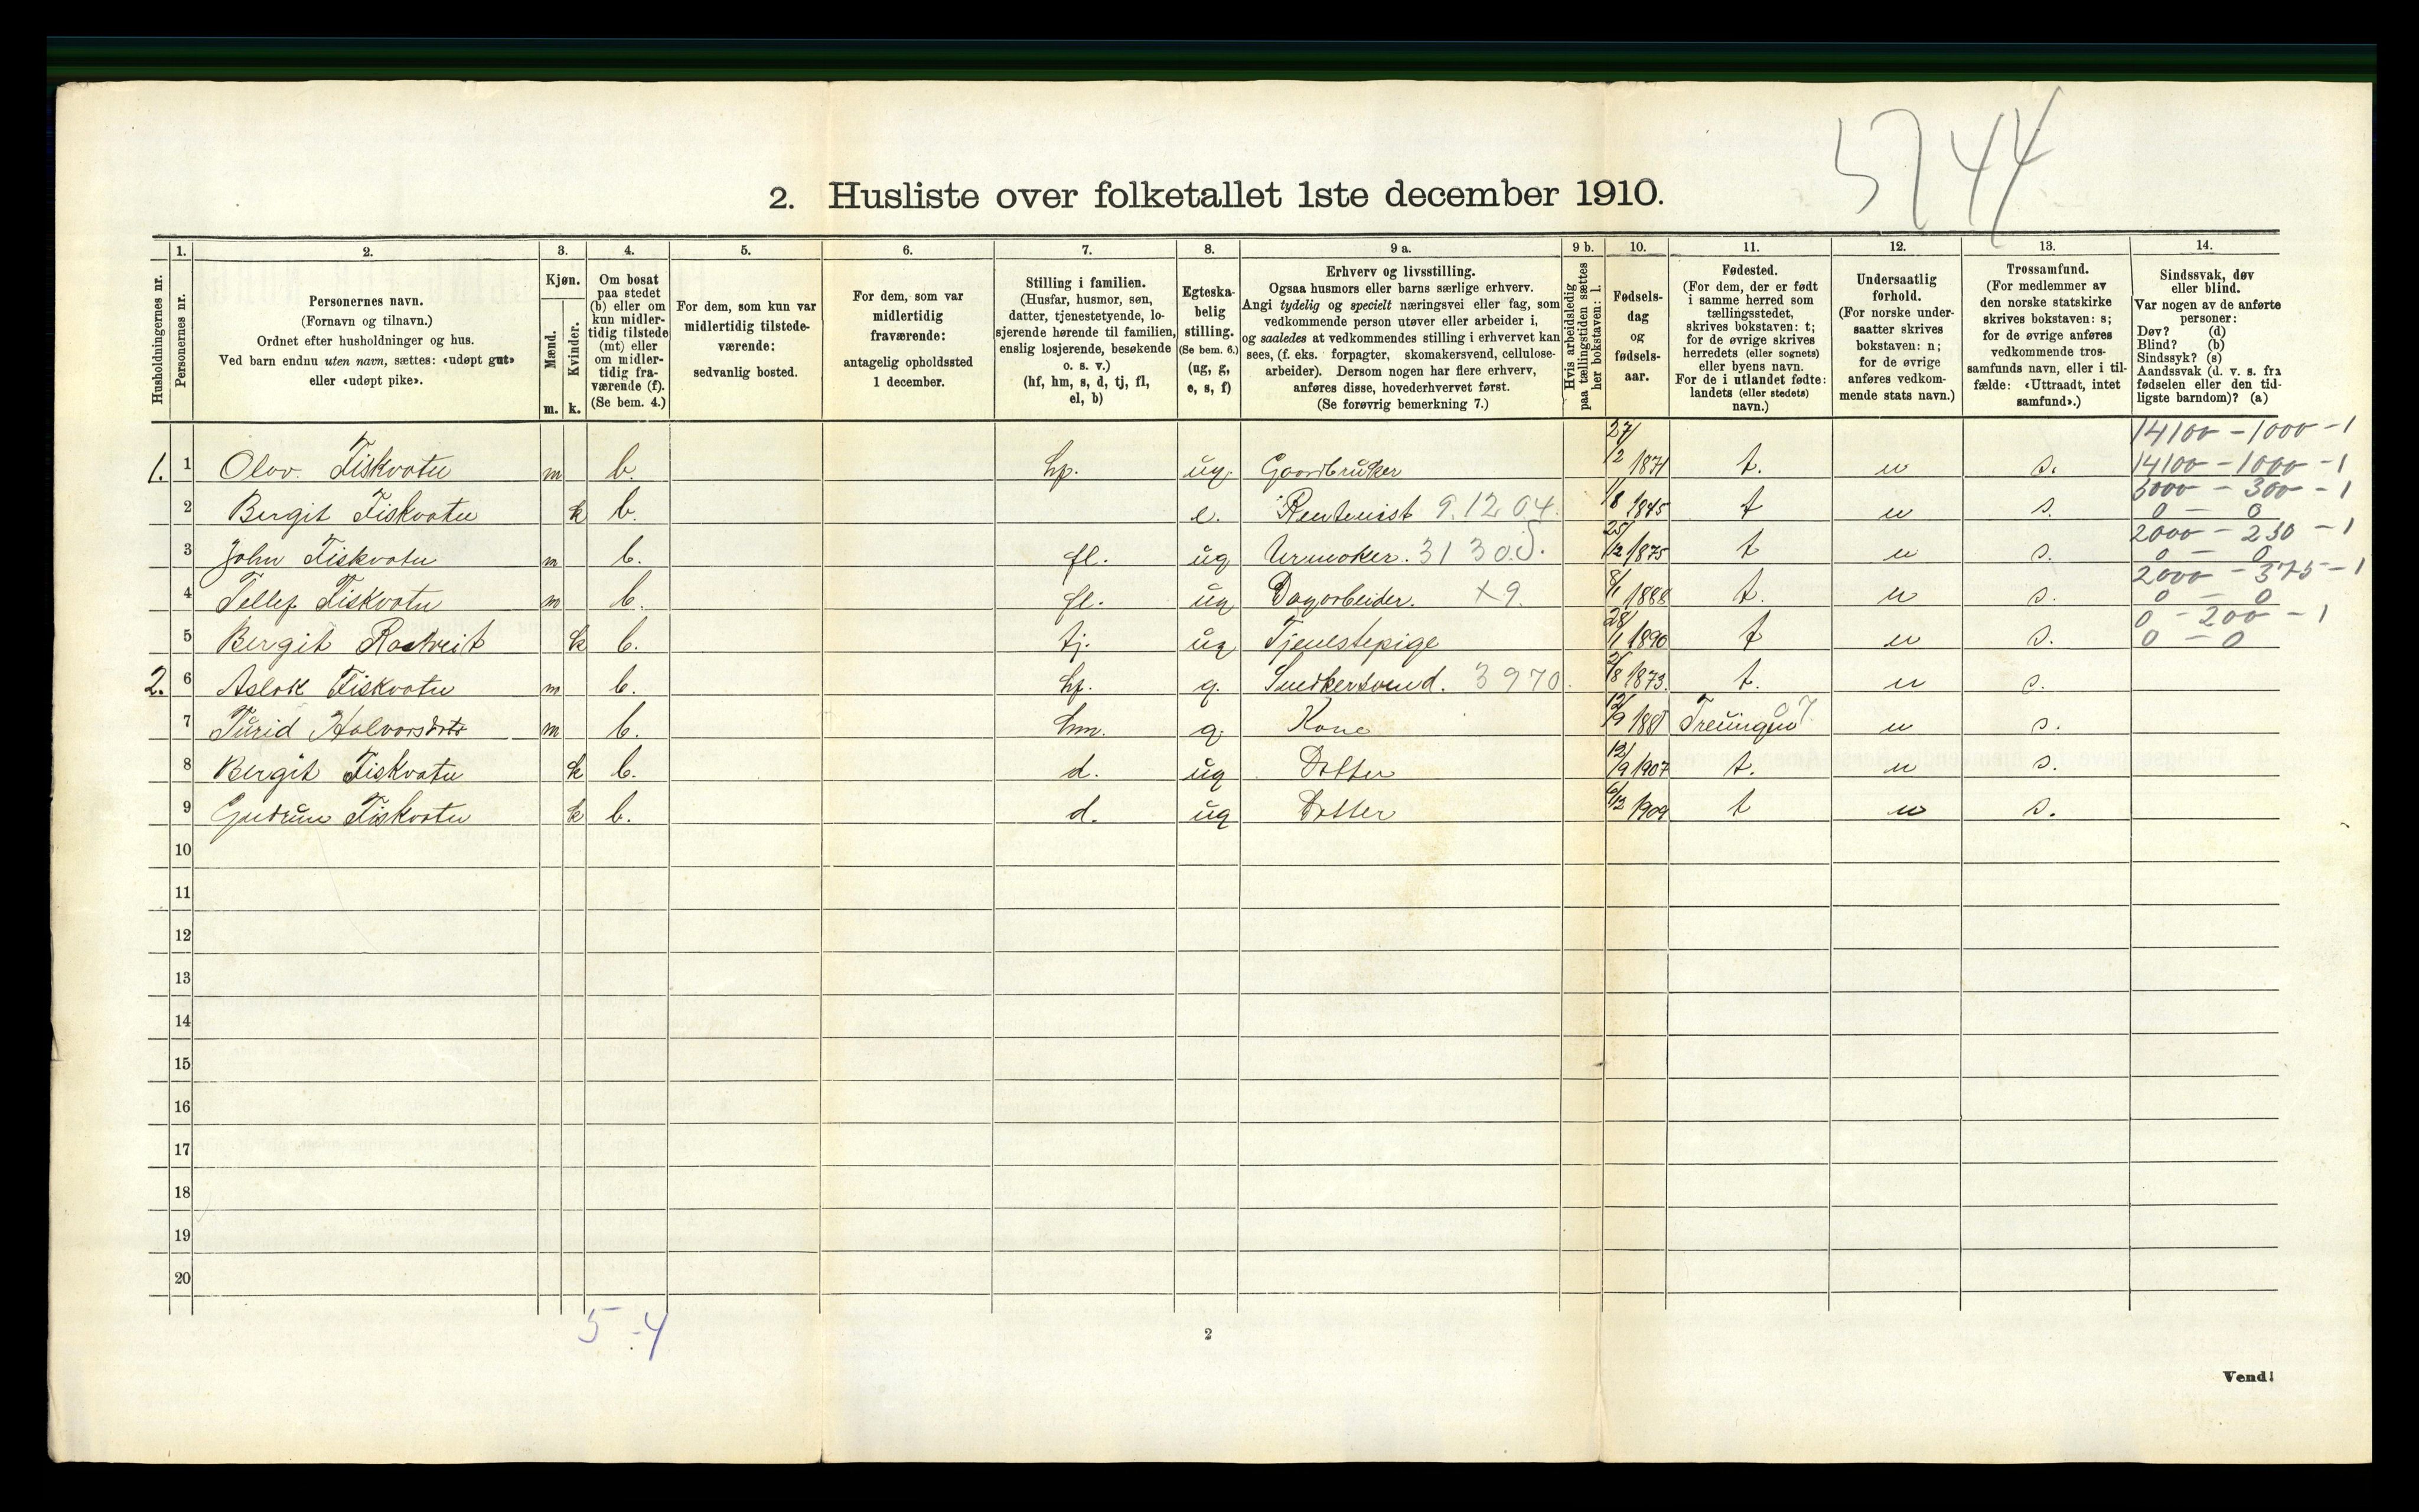 5744
2. Husliste over folketallet 1ste december 1910.
Husholdningernes nr.
1.
Personernes nr.
2.
Personernes navn.
(Fornavn og tilnavn.)
Ordnet efter husholdninger og hus.
Ved barn endnu uten navn, sættes: «udøpt gut»
eller «udøpt pike».
3.
Kjøn.
Mænd.
Kvinder.
m. k.
4.
Om bosat
paa stedet
(b) eller om
kun midler-
tidig tilstede
(mt) eller
om midler-
tidig fra-
værende (f).
(Se bem. 4.)
5.
For dem, som kun var
midlertidig tilstede-
værende:
sedvanlig bosted.
6.
For dem, som var
midlertidig
fraværende:
antagelig opholdssted
1 december.
7.
Stilling i familien.
(Husfar, husmor, søn,
datter, tjenestetyende, lo-
sjerende hørende til familien,
enslig losjerende, besøkende
o. s. v.)
(hf, hm, s, d, tj, fl,
el, b)
8.
Egteska-
belig
stilling.
(Se bem. 6.)
(ug, g,
e, s, f)
9 a.
Erhverv og livsstilling.
Ogsaa husmors eller barns særlige erhverv.
Angi tydelig og specielt næringsvei eller fag, som
vedkommende person utøver eller arbeider i,
og saaledes at vedkommendes stilling i erhvervet kan
sees, (f. eks. forpagter, skomakersvend, cellulose-
arbeider). Dersom nogen har flere erhverv,
anføres disse, hovederhvervet først.
(Se forøvrig bemerkning 7.)
9 b.
Hvis arbeidsledig
paa tællingstiden sættes
her bokstaven: l.
10.
Fødsels-
dag
og
fødsels-
aar.
11.
Fødested.
(For dem, der er født
i samme herred som
tællingsstedet,
skrives bokstaven: t;
for de øvrige skrives
herredets (eller sognets)
eller byens navn.
For de i utlandet fødte:
landets (eller stedets)
navn.)
12.
Undersaatlig
forhold.
(For norske under-
saatter skrives
bokstaven: n;
for de øvrige
anføres vedkom-
mende stats navn.)
13.
Trossamfund.
(For medlemmer av
den norske statskirke
skrives bokstaven: s;
for de øvrige anføres
vedkommende tros-
samfunds navn, eller i til-
fælde: «Uttraadt, intet
samfund».)
14.
Sindssvak, døv
eller blind.
Var nogen av de anførte
personer:
Døv? (d)
Blind? (b)
Sindssyk? (s)
Aandssvak (d. v. s. fra
fødselen eller den tid-
ligste barndom)? (a)
14100 - 1000 - 1
1. 1 Olav Fiskvatn m b. hf. ug. Gaardbruker 27/2 1871 t. n s. 14100 - 1000 - 1
6000 - 300 - 1
2 Bergit Fiskvatn k b. e. Rentenist 9.12.04. 1/8 1845 t n s. 0 - 0
2000 - 250 - 1
3 John Fiskvatn m b. fl. ug Urmaker. 3130 25/12 1875 t n s. 0 - 0
2000 - 375 - 1
4 Tellef Fiskvatn m b. fl. ug Dagarbeider. X9. 8/1 1888 t. n s. 0 - 0
0 - 200 - 1
5 Bergit k b. tj. ug Tjenestepige 28/1 1890 t n s. 0 - 0
2. 6 Aslak Fiskvatn m b. hf. g. Snedkersvend. 3970. 2/8 1873. t. n s.
7 Turid Halvorsdtr m b. hm. g. Kone 12/9 1881 Treungen 07 n s.
8 Bergit Fiskvatn k b. d. ug Datter 12/9 1907 t. n s.
9 Gudrun Fiskvatn k b. d. ug Datter 6/12 1909 t n s.
10
11
12
13
14
15
16
17
18
19
20
5-4
2
Vend!